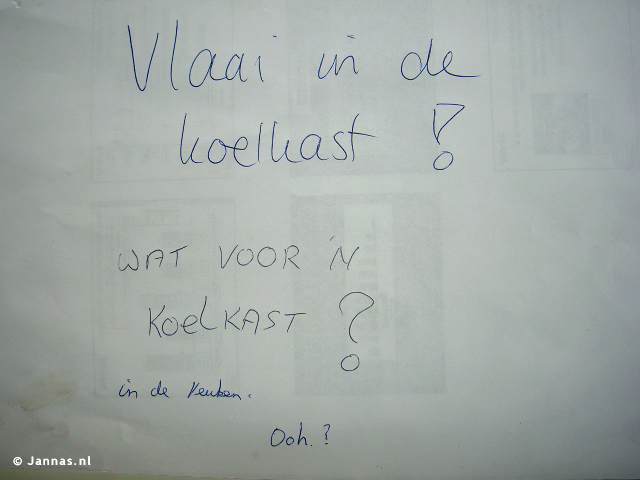 Vlaai in de
koelkast !
WAT VOOR 'N
KOELKAST ?
in de keuken.
Ooh.?
© Jannas.nl